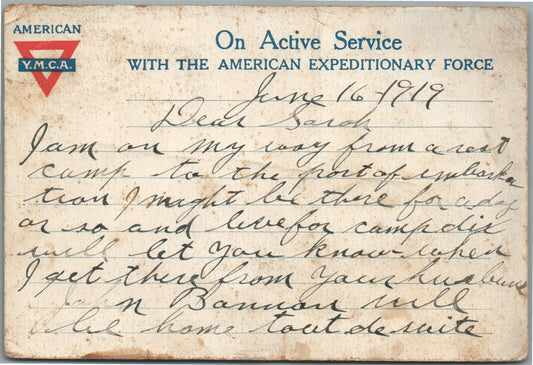 AMERICAN
Y.M.C.A.
On Active Service
WITH THE AMERICAN EXPEDITIONARY FORCE
June 16-1919
Dear Sarah
I am on my way from a rest
camp to the port of embarka
tion I might be there for a day
or so and leve for camp dix
will let you know when
I get there from your husband
John Bannon will
be home tout de suite